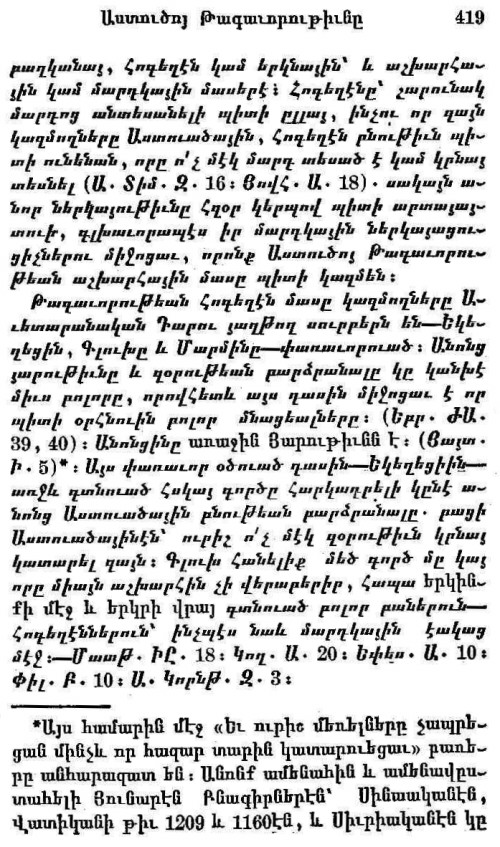 Աստուծոյ Թագաւորութիւնը 419
բաղկանայ, Հոգեղէն կամ երկնային՝ և աշխարհա-
յին կամ մարդկային մասերէ։ Հոգեղէնը՝ շարունակ
մարդոց անտեսանելի պիտի ըլլայ, ինչու որ զայն
կազմողները Աստուածային, Հոգեղէն բնութիւն պի-
տի ունենան, որը ո՛չ մէկ մարդ տեսած է կամ կրնայ
տեսնել (Ա. Տիմ. Զ. 16։ Յովհ. Ա. 18)․ սակայն ա-
նոր ներկայութիւնը հզօր կերպով պիտի արտայայ-
տուի, գլխաւորապէս իր մարդկային ներկայացու-
ցիչներու միջոցաւ, որոնք Աստուծոյ Թագաւորու-
թեան աշխարհային մասը պիտի կազմեն։
Թագաւորութեան հոգեղէն մասը կազմողները Ա-
ւետարանական Դարու յաղթող սուրբերն են—Եկե-
ղեցին, Գլուխը և Մարմինը—փառաւորուած։ Անոնց
յարութիւնը և զօրութեան բարձրանալը կը կանխէ
միւս բոլորը, որովհետև այս դասին միջոցաւ է որ
պիտի օրհնուին բոլոր մնացեալները։ (Եբր. ԺԱ.
39, 40)։ Անոնցինը առաջին Յարութիւնն է։ (Յայտ.
Ի. 5)*։ Այս փառաւոր օծուած դասին—Եկեղեցիին—
առջև գտնուած հսկայ գործը հարկադրելի կընէ ա-
նոնց Աստուածային բնութեան բարձրանալը․ բացի
Աստուածայինէն՝ ուրիշ ո՛չ մէկ զօրութիւն կրնայ
կատարել զայն։ Գլուխ հանելիք մեծ գործ մը կայ
որը միայն աշխարհին չի վերաբերիր, հապա երկին-
քի մէջ և երկրի վրայ գտնուած բոլոր բաներուն—
հոգեղէններուն՝ ինչպէս նաև մարդկային էակաց
մէջ։—Մատթ. ԻԸ. 18։ Կող. Ա. 20։ Եփես. Ա. 10։
Փիլ. Բ. 10։ Ա. Կորնթ. Զ. 3։
*Այս համարին մէջ «Եւ ուրիշ մեռելները չապրե-
ցան մինչև որ հազար տարին կատարուեցաւ» բառե-
րը անհարազատ են։ Անոնք ամենահին և ամենավըս-
տահելի Յունարէն Բնագիրներէն՝ Սինաականէն,
Վատիկանի թիւ 1209 և 1160էն, և Սիւրիականէն կը